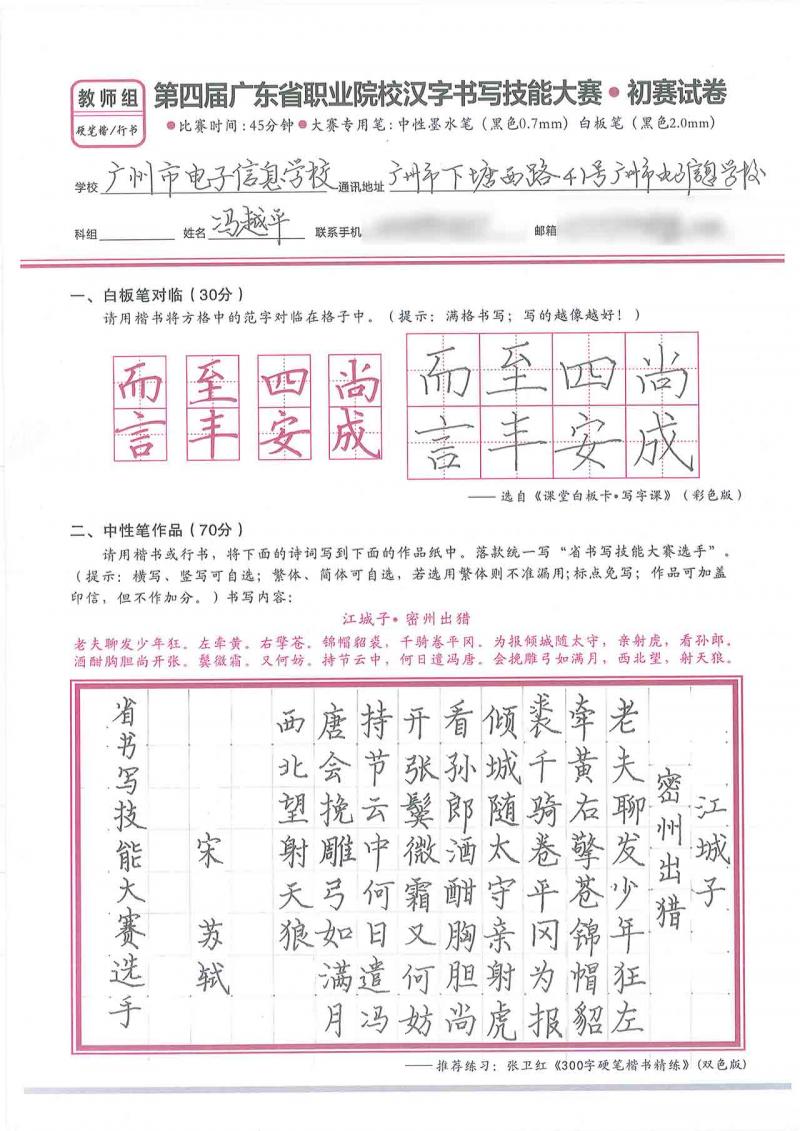 教师组
硬笔楷/行书
第四届广东省职业院校汉字书写技能大赛·初赛试卷
●比赛时间:45分钟●大赛专用笔:中性墨水笔(黑色0.7mm)白板笔(黑色2.0mm)
学校 广州市电子信息学校 通讯地址 广州市下塘西路41号广州市电子信息学校
科组 姓名 冯越平 联系手机 邮箱
一、白板笔对临(30分)
请用楷书将方格中的范字对临在格子中。(提示:满格书写;写的越像越好!)
而至四尚
言丰安成
而至四尚
言丰安成
——选自《课堂白板卡·写字课》(彩色版)
二、中性笔作品(70分)
请用楷书或行书,将下面的诗词写到下面的作品纸中。落款统一写“省书写技能大赛选手”。
(提示:横写、竖写可自选;繁体、简体可自选,若选用繁体则不准漏用;标点免写;作品可加盖
印信,但不作加分。)书写内容:
江城子·密州出猎
老夫聊发少年狂。左牵黄。右擎苍。锦帽貂裘,千骑卷平冈。为报倾城随太守,亲射虎,看孙郎。
酒酣胸胆尚开张。鬓微霜。又何妨。持节云中,何日遣冯唐。会挽雕弓如满月,西北望,射天狼。
江城子
密州出猎
老夫聊发少年狂左
牵黄右擎苍锦帽貂
裘千骑卷平冈为报
倾城随太守亲射虎
看孙郎酒酣胸胆尚
开张鬓微霜又何妨
持节云中何日遣冯
唐会挽雕弓如满月
西北望射天狼
宋苏轼
省书写技能大赛选手
——推荐练习:张卫红《300字硬笔楷书精练》(双色版)